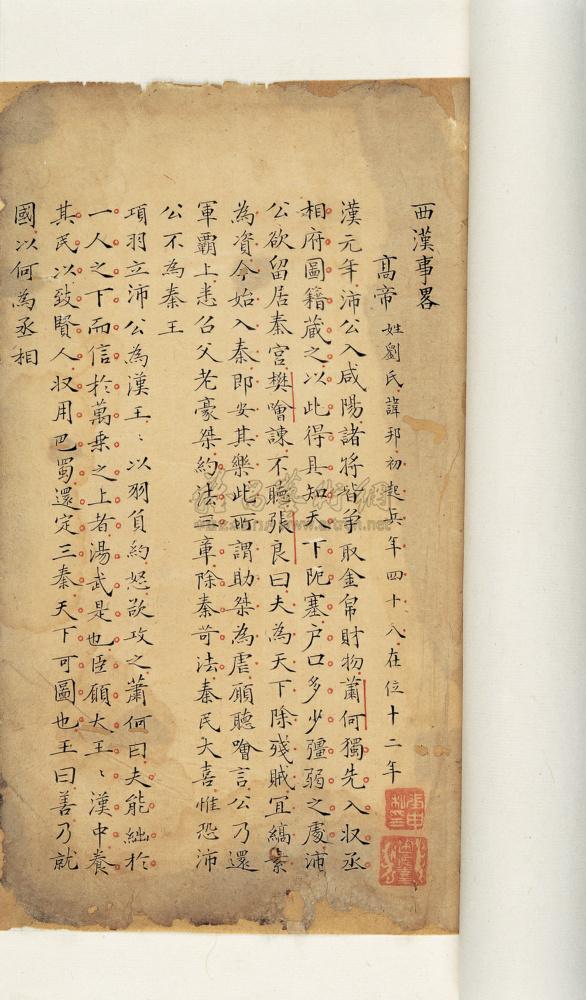 西漢事畧
高帝 姓劉氏諱邦初起兵年四十八在位十二年
漢元年沛公入咸陽諸將皆爭取金帛財物蕭何獨先入収丞
相府圖籍蔵之以此得具知天下阨塞户口多少彊弱之處沛
公欲留居秦宮樊噲諫不聽張良曰夫為天下除殘賊宜縞素
為資今始入秦即安其樂此所謂助桀為虐願聽噲言公乃還
軍霸上悉召父老豪桀約法三章除秦苛法秦民大喜惟恐沛
公不為秦王
項羽立沛公為漢王〻以羽負約怒欲攻之蕭何曰夫能絀於
一人之下而信於萬乗之上者湯武是也臣願大王〻漢中養
其民以致賢人収用巴蜀還定三秦天下可圖也王曰善乃就
國以何為丞相